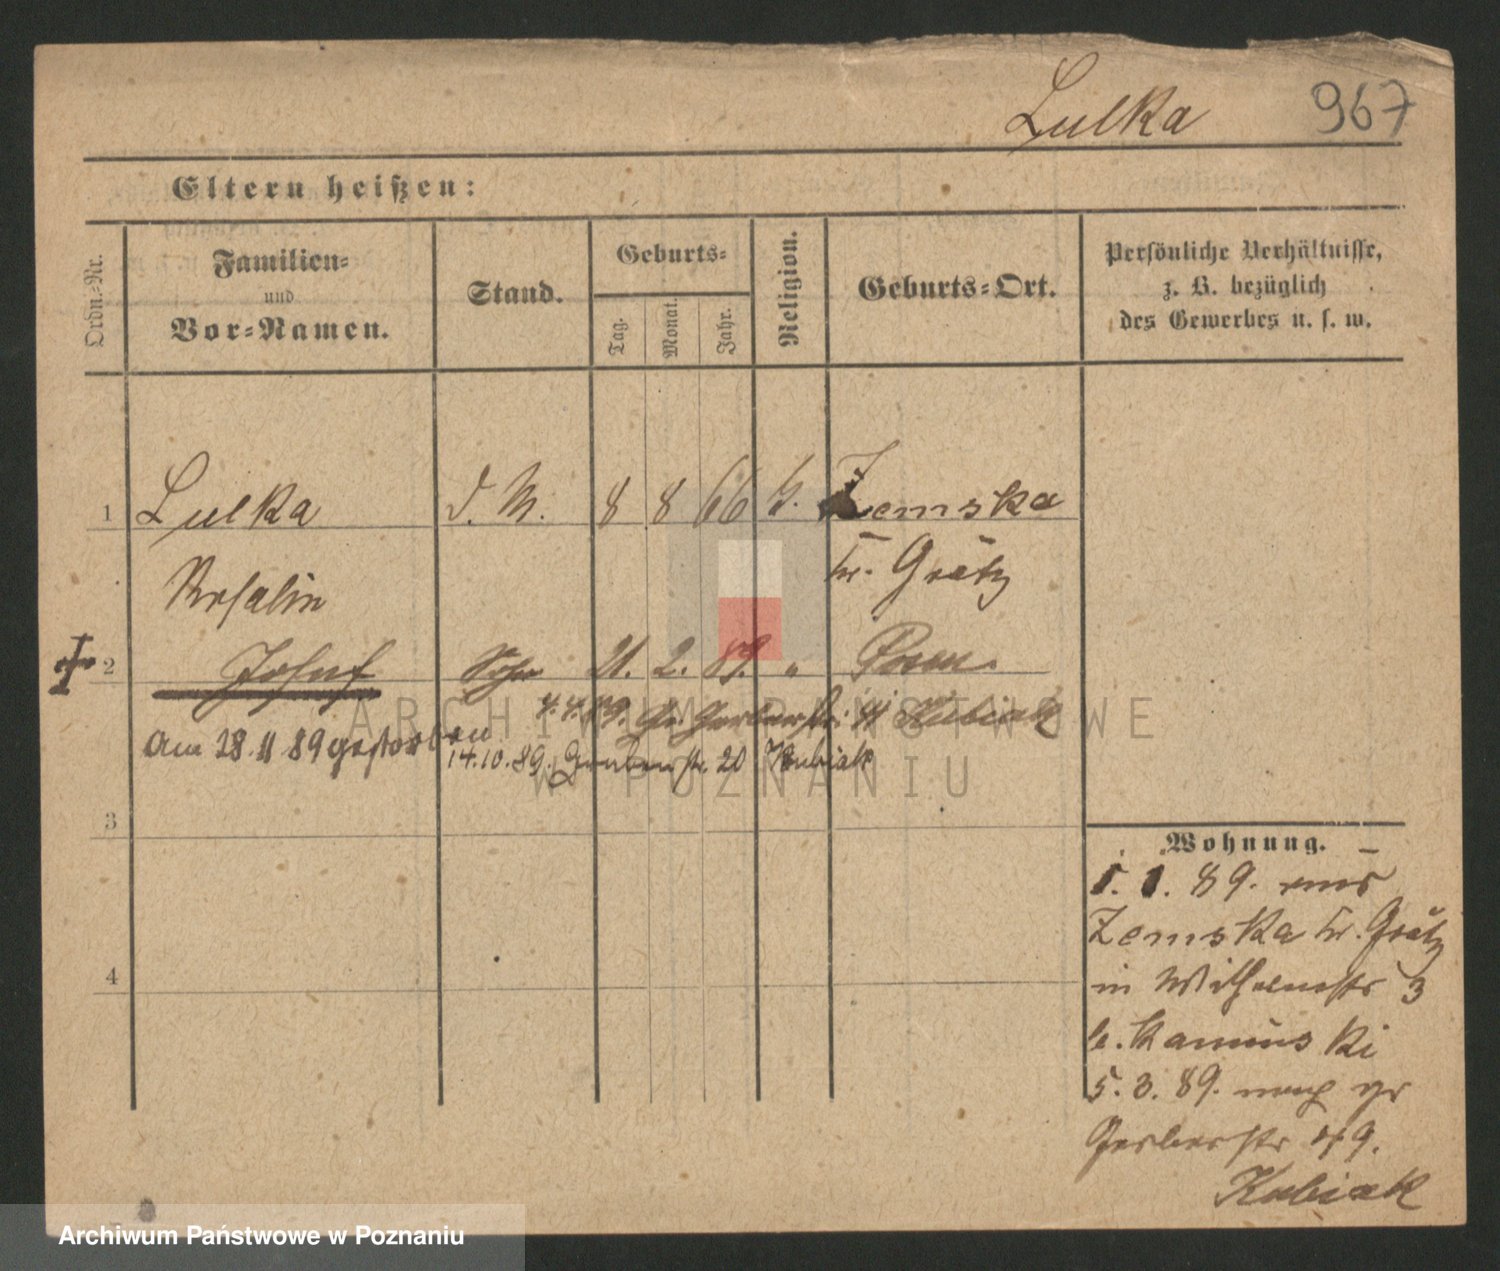 Lulka 967
Eltern heißen:
Ordn.-Nr.
Familien-
und
Vor-Namen.
Stand.
Geburts-
Tag.
Monat.
Jahr.
Religion.
Geburts-Ort.
Persönliche Verhältnisse,
z. B. bezüglich
des Gewerbes u. s. w.
1 Lulka d. M. 8 8 66 Zemska
Kr. Grätz
Rosalie
2 Josef Sohn 21. 2. 89. " Posen.
4.4.89. Gr. Gerberstr. Kubiak
am 28.11 89 gestorben
14.10.89. Grabenstr. 20 Kubiak
3
4
Wohnung.
5. 1. 89. aus
Zemska Kr. Grätz
in Wilhelmstr 3
b. Kaminski
5. 3. 89. nach gr
Gerberstr 49.
Kubiak
ARCHIWUM PAŃSTWOWE
W POZNANIU
Archiwum Państwowe w Poznaniu